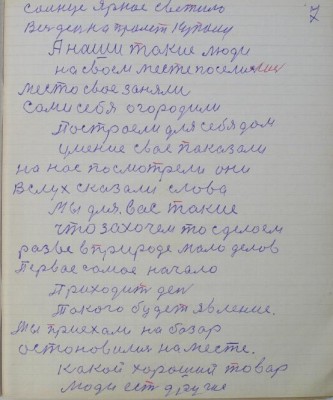 солнце Ярное светило
А наши такие люди
на своем месте поселились
место свое заняли
Сами себя огородили
Построем для себя дом
умение свое показали
на нас посмотрели они
Вслух сказали слова
Мы для, вас такие
что захочем то сделоем
разве в природе мало делов
Первое самое начало
Приходит ден
Такого будет явление.
Мы приехали на базар
остоновили на месте.
какой хороший товар
люди ест другие